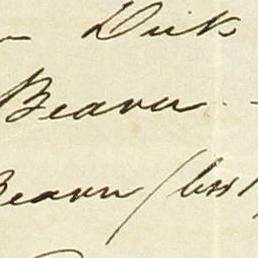 Dick
Beaver
Beaver (lost)